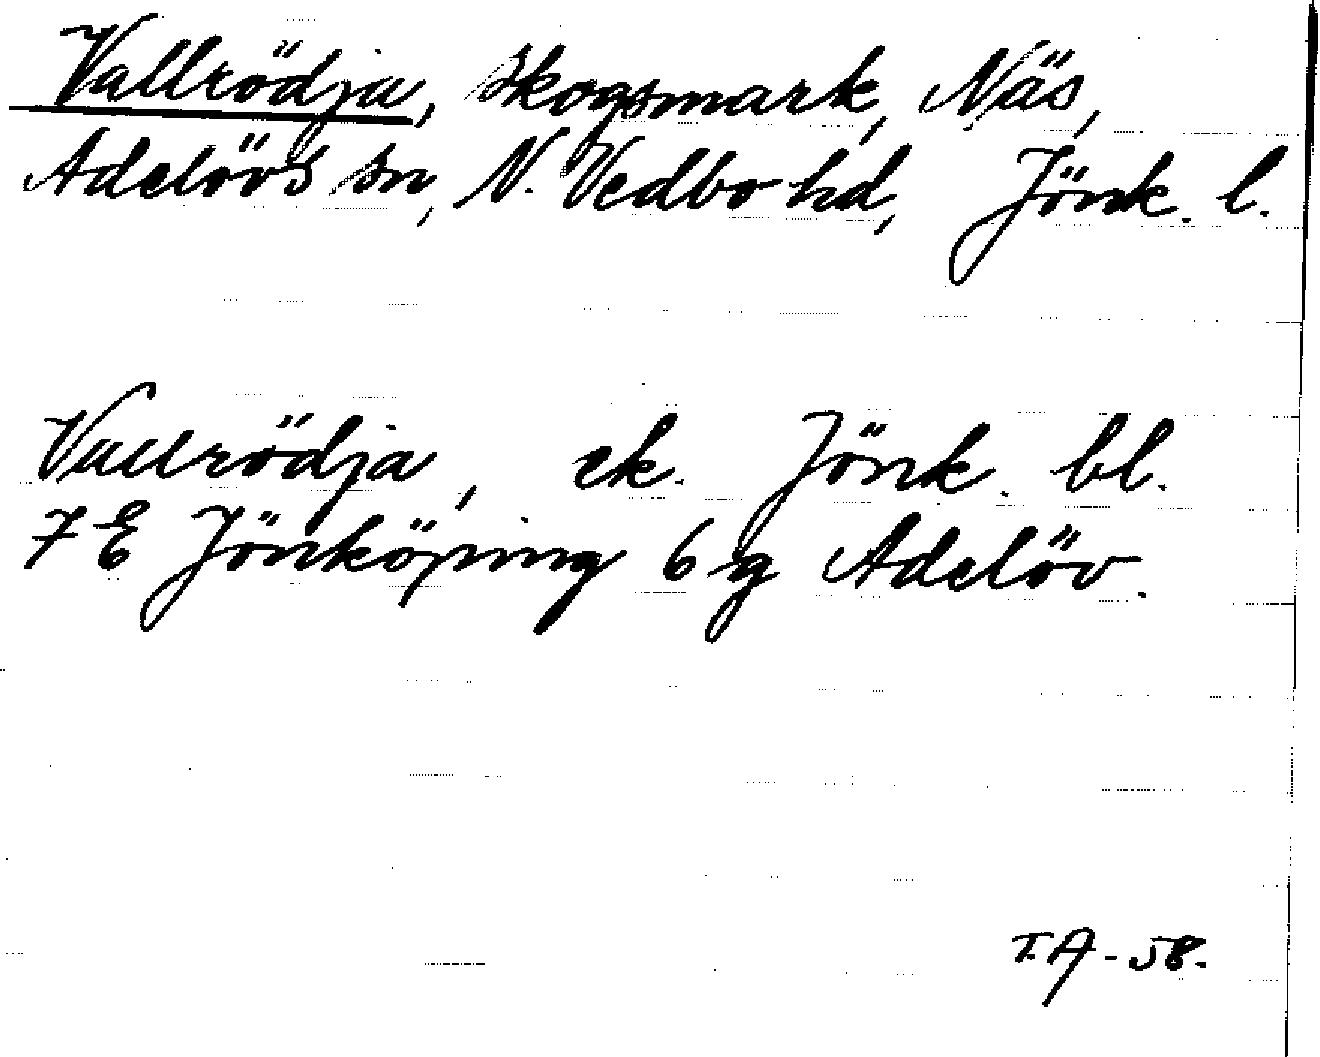 Vallrödja, skogsmark, Näs,
Adelövs sn, N. Vedbo hd, Jönk. l.
Vallrödja, ek. Jönk. bl.
7 E Jönköping 6 g Adelöv.
T.A-58.